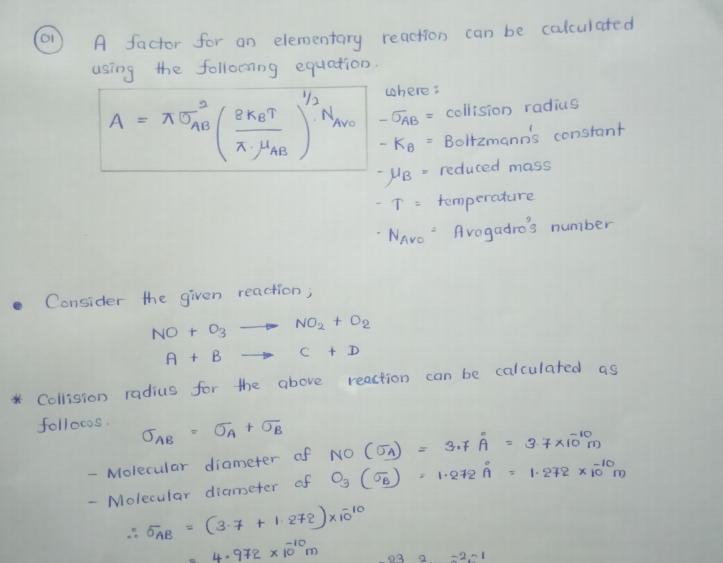 01 A factor for an elementary reaction can be calculated
using the following equation.
A = πσ_AB² (8K_BT / π.μ_AB)^1/2 . N_Avo
where:
- σ_AB = collision radius
- K_B = Boltzmann's constant
- μ_B = reduced mass
- T = temperature
- N_Avo = Avogadro's number
• Consider the given reaction;
NO + O₃ → NO₂ + O₂
A + B → C + D
* Collision radius for the above reaction can be calculated as
follows.
σ_AB = σ_A + σ_B
- Molecular diameter of NO (σ_A) = 3.7 Å = 3.7×10⁻¹⁰ m
- Molecular diameter of O₃ (σ_B) = 1.272 Å = 1.272 ×10⁻¹⁰ m
∴ σ_AB = (3.7 + 1.272)×10⁻¹⁰
= 4.972 ×10⁻¹⁰ m